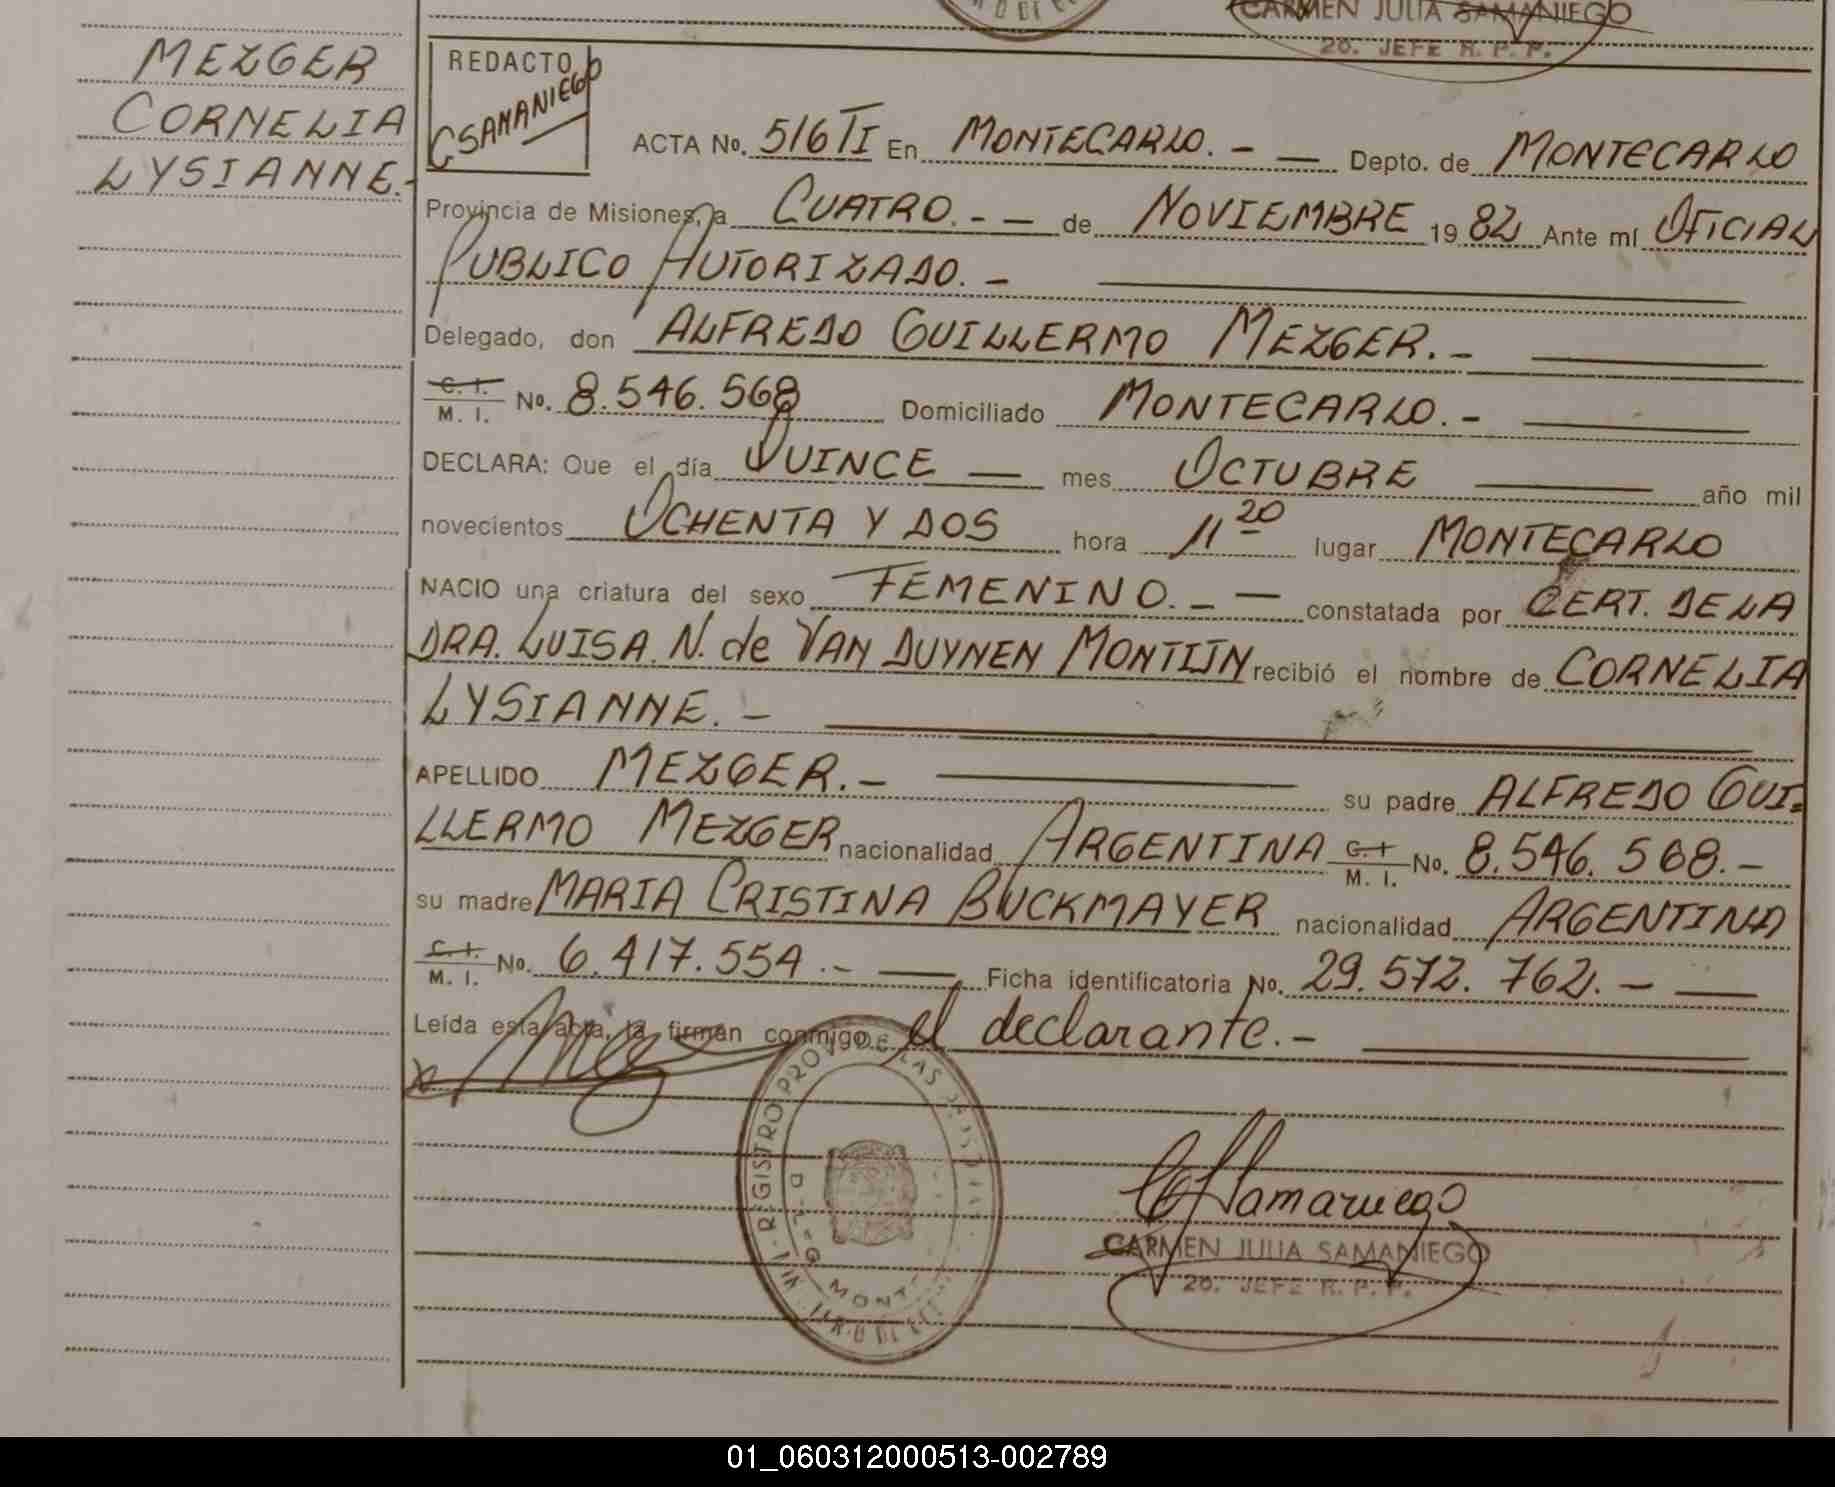 CARMEN JULIA SAMANIEGO
2o. JEFE R. P. P.
MEZGER
CORNELIA
LYSIANNE.-
REDACTO
CSAMANIEGO
ACTA No. 516 TI En MONTECARLO. - — Depto. de MONTECARLO
Provincia de Misiones, a CUATRO. - — de NOVIEMBRE 1982 Ante mí OFICIAL
PUBLICO AUTORIZADO. -
Delegado, don ALFREDO GUILLERMO MEZGER. -
C. I.
M. I. No. 8.546.568 Domiciliado MONTECARLO. -
DECLARA: Que el día QUINCE — mes OCTUBRE — año mil
novecientos OCHENTA Y DOS hora 11 20 lugar MONTECARLO
NACIO una criatura del sexo FEMENINO. - — constatada por CERT. DE LA
DRA. LUISA. N. de VAN DUYNEN MONTIJN recibió el nombre de CORNELIA
LYSIANNE. -
APELLIDO MEZGER. - su padre ALFREDO GUI=
LLERMO MEZGER nacionalidad ARGENTINA C. I. M. I. No. 8.546.568. -
su madre MARIA CRISTINA BUCKMAYER nacionalidad ARGENTINA
C. I.
M. I. No. 6.417.554. - — Ficha identificatoria No. 29.572.762. - —
Leída esta acta, la firman conmigo el declarante. -
REGISTRO PROV. DE LAS
CSamaniego
CARMEN JULIA SAMANIEGO
2o. JEFE R. P. P.
01_060312000513-002789